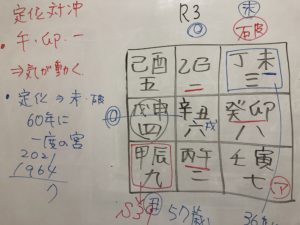 定化対冲
・午・卯・一
⇒気が動く
・定化⇒未・破
60年に
一度の宮
2021
1964
R3
未
破
己酉 乙巳 丁未
五 一 三
戊申 辛丑 癸卯
四 六 戌 八
甲辰 丙午 壬寅
九 二 七
ア
S39 丑 57歳 36